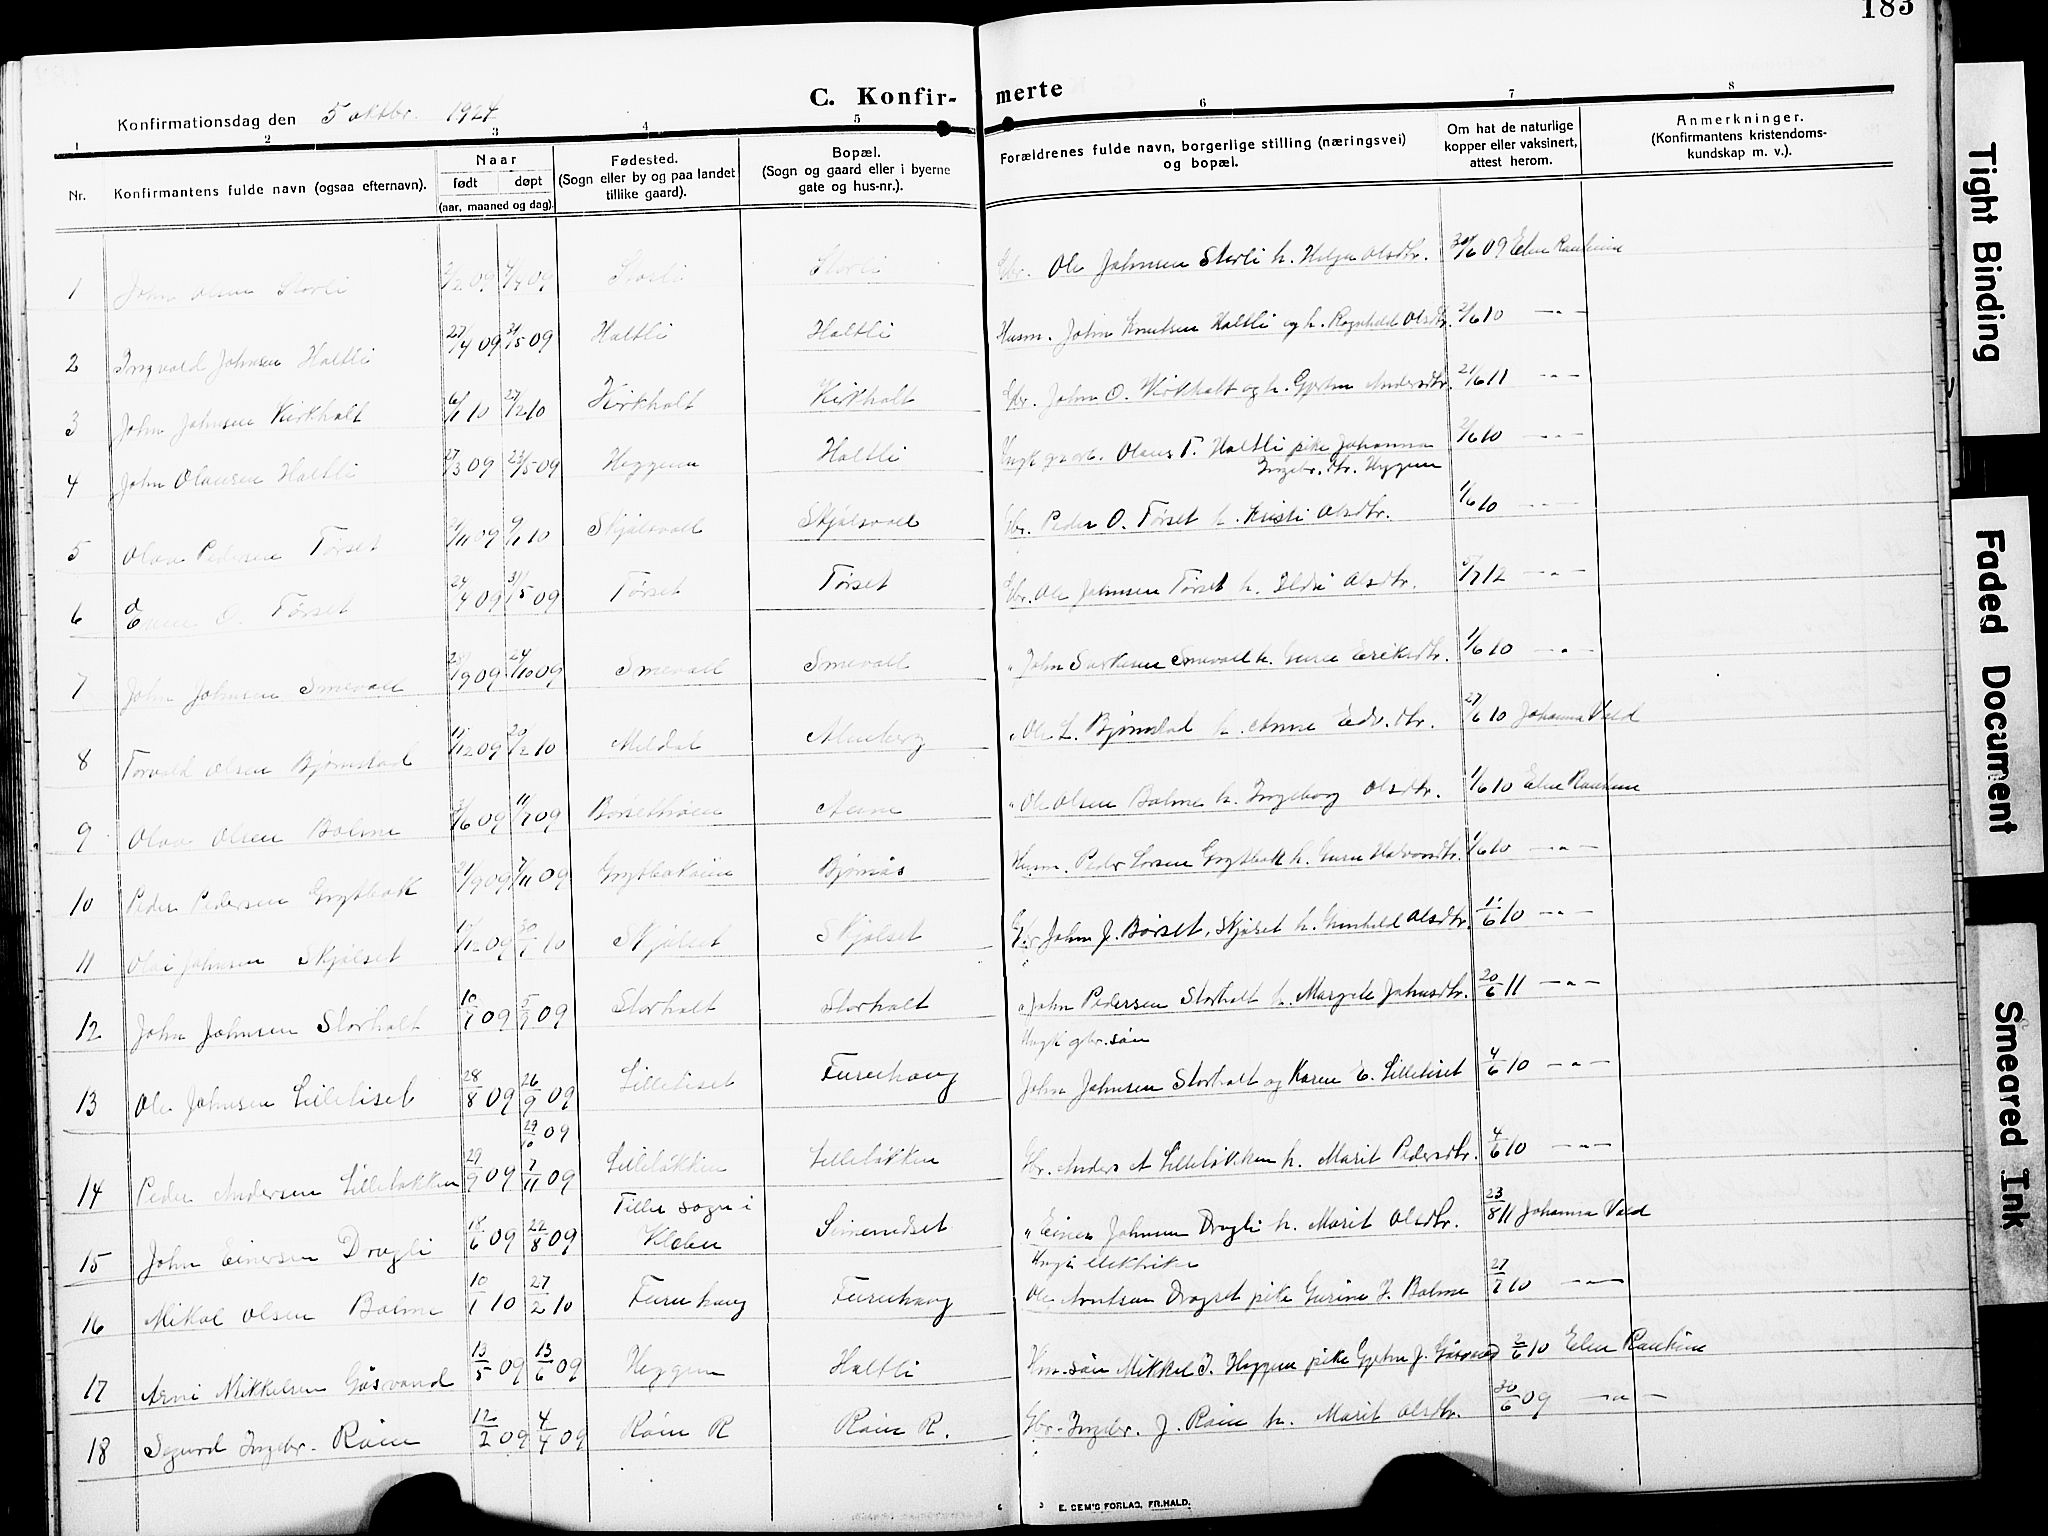 183
C. Konfir- merte
Konfirmationsdag den 5 oktbr. 1924
1 2 3 4 5 6 7 8
Nr.
Konfirmantens fulde navn (ogsaa efternavn).
Naar
født døpt
(aar, maaned og dag).
Fødested.
(Sogn eller by og paa landet
tillike gaard).
Bopæl.
(Sogn og gaard eller i byerne
gate og hus-nr.).
Forældrenes fulde navn, borgerlige stilling (næringsvei)
og bopæl.
Om hat de naturlige
kopper eller vaksinert,
attest herom.
Anmerkninger.
(Konfirmantens kristendoms-
kundskap m. v.).
1 John Olsen Storli 09 09 Storli Storli Gbr. Ole Johnsen Storli h. Helga Olsdtr. 30/6 09
2 Ingvald Johnsen Holtli 27/4 09 31/5 09 Holtli Holtli Husm. John Knutsen Holtli og h. Ragnhild Olsdtr. 2/6 10 — " —
3 John Johnsen Kirkholt 6/1 10 27/2 10 Kirkholt Kirkholt Gbr. John O. Kirkholt og h. Gjertru Andersdtr. 21/6 11 — " —
4 John Olausen Holtli 27/3 09 23/5 09 Heggem Holtli Ungk. Olaus T. Holtli pike Johanna
Ingebr. dtr. Heggem 2/6 10 — " —
5 Olav Pedersen Tørset 11 09 1 10 Skjølsvoll Skjølsvoll Gbr. Peder O. Tørset h. Kristi Olsdtr. 1/6 10 — " —
6 O. Tørset 24/4 09 31/5 09 Tørset Tørset Gbr. Ole Johnsen Tørset h. Ildri Olsdtr. 7 12 — " —
7 John Johnsen Smevoll 9 09 24/10 09 Smevoll Smevoll " John Smevoll h. Guru Eriksdtr. 1/6 10 — " —
8 Torvald Olsen Bjørnstad 12 09 20/2 10 Meldal Almberg " Ole L. Bjørnstad h. Anne Edv. dtr. 27/6 10 Johanna Vold
9 Olav Olsen Bolme 6 09 11/7 09 Aune " Ole Olsen Bolme h. Ingeborg Olsdtr. 1/6 10
10 Peder Pedersen Grytbak 9 09 7/11 09 Grytbakøien Bjørnås Husm. Peder Larsen Grytbak h. Guru Halvorsdtr. 1/6 10 — " —
11 Johnsen Skjølset 12 09 30/1 10 Skjølset Skjølset Gbr John J. Børset, Skjølset h. Gunhild Olsdtr. 6 10 — " —
12 John Johnsen Storholt 10 09 5 09 Storholt Storholt " John Pedersen Storholt h. Margrete Johnsdtr. 20/6 11 — " —
13 Ole Johnsen Lilleliset 28/8 09 26/9 09 Lilleliset Furuhaug Ungk gbr. søn
John Johnsen Storholt og Karen E. Lilleliset 4/6 10 — " —
29/10 09
14 Peder Andersen Lilleløkken 29/9 09 7/11 09 Lilleløkken Lilleløkken Gbr. Anders A Lilleløkken h. Marit Pedersdtr. 4/6 10 — " —
15 John Einersen Dragli 18/6 09 22/8 09 Tiller sogn i
Klebu " Einer Johnsen Dragli h. Marit Olsdtr. 23/8 11 Johanna Vold
16 Mikal Olsen Bolme 10/1 10 27/2 10 Furuhaug Furuhaug Ungk elektriker
Ole Arntsen Dragset pike Gurine J. Bolme 27/7 10 — " —
17 Arne Mikkelsen Gåsvand 13/5 09 13/6 09 Heggem Holtli Hm. søn Mikkel J. Heggem pike Gjertru J. Gåsvand 2/6 10
18 Sigurd Ingebr. Røin 12/2 09 4/4 09 Røin R Røin R. Gbr. Ingebr. J. Røin h. Marit Olsdtr. 30/6 09 — " —
E. SEM'S FORLAG, FR.HALD.
Tight Binding
Faded Document
Smeared Ink